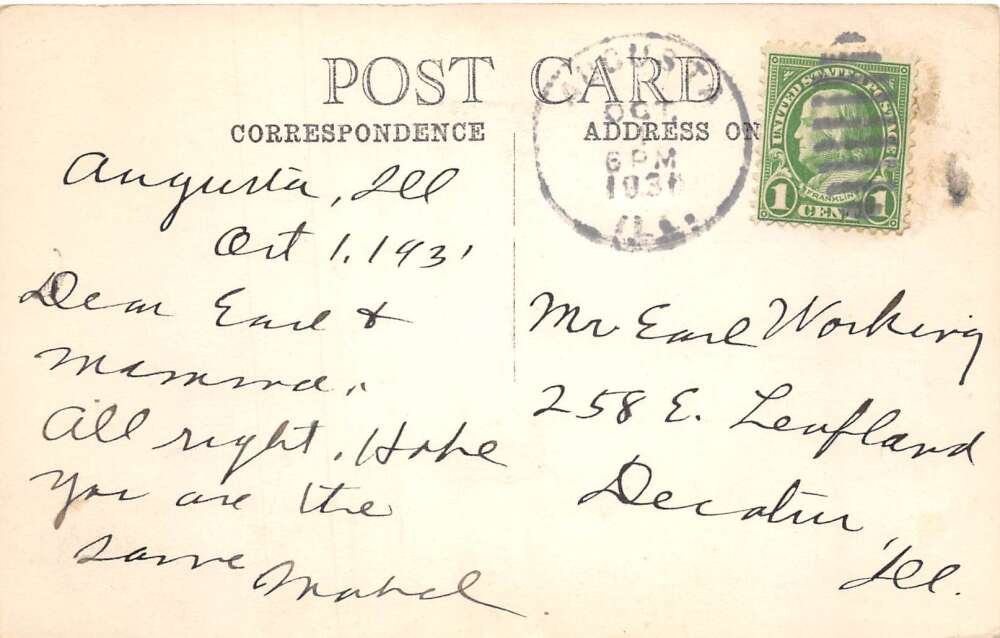 POST CARD
CORRESPONDENCE
ADDRESS ON
AUGUSTA
OCT
1
6 PM
1931
ILL.
UNITED STATES POSTAGE
FRANKLIN
1 CENT 1
Augusta, Ill
Oct 1, 1931
Dear Earl &
Mamma,
All right, Hope
you are the
same Mabel
Mr Earl Working
258 E. Leafland
Decatur,
Ill.